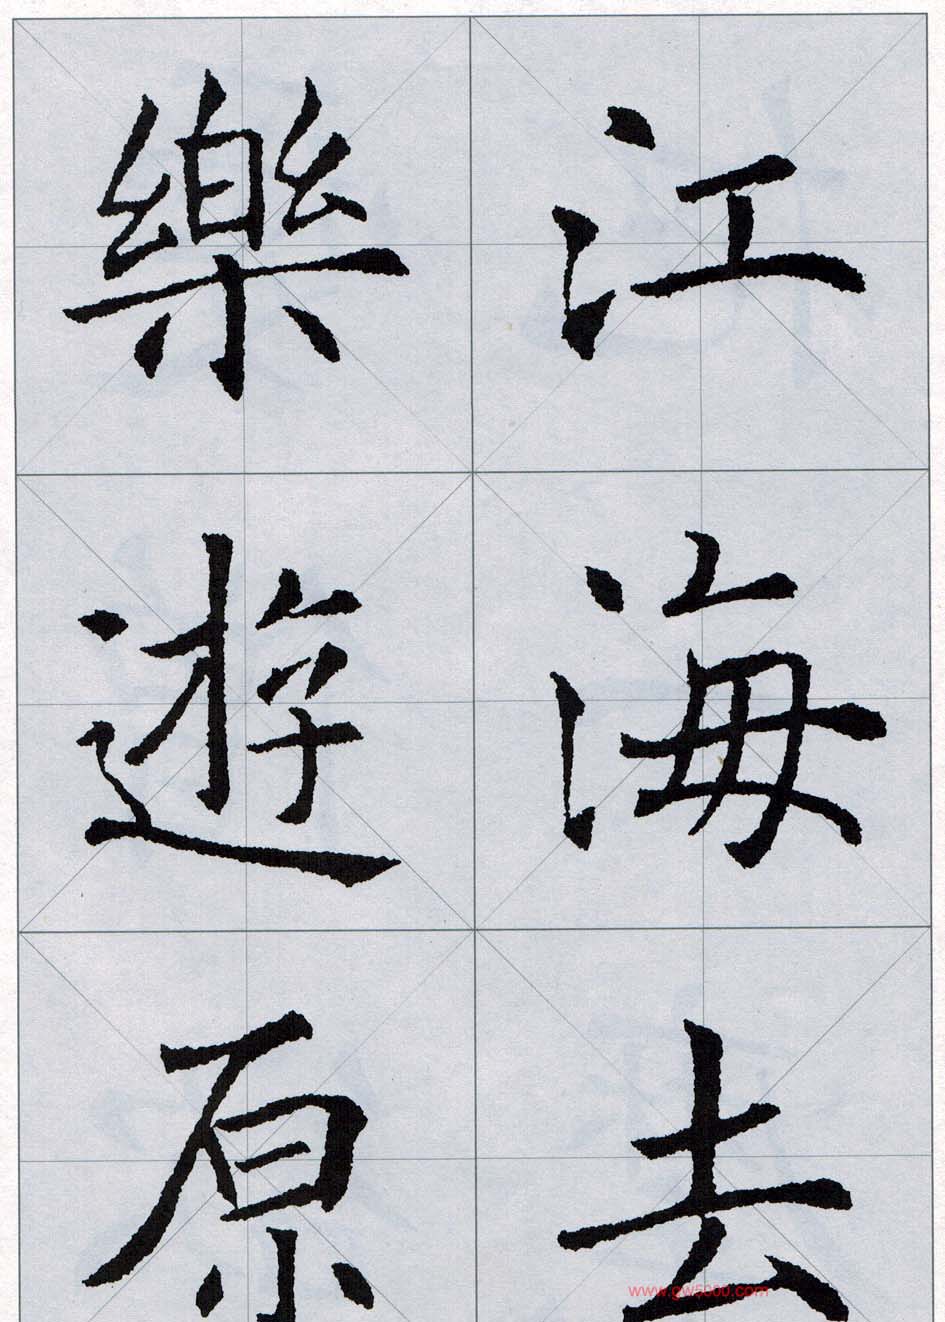 江海去
樂遊原
www.gw5000.com